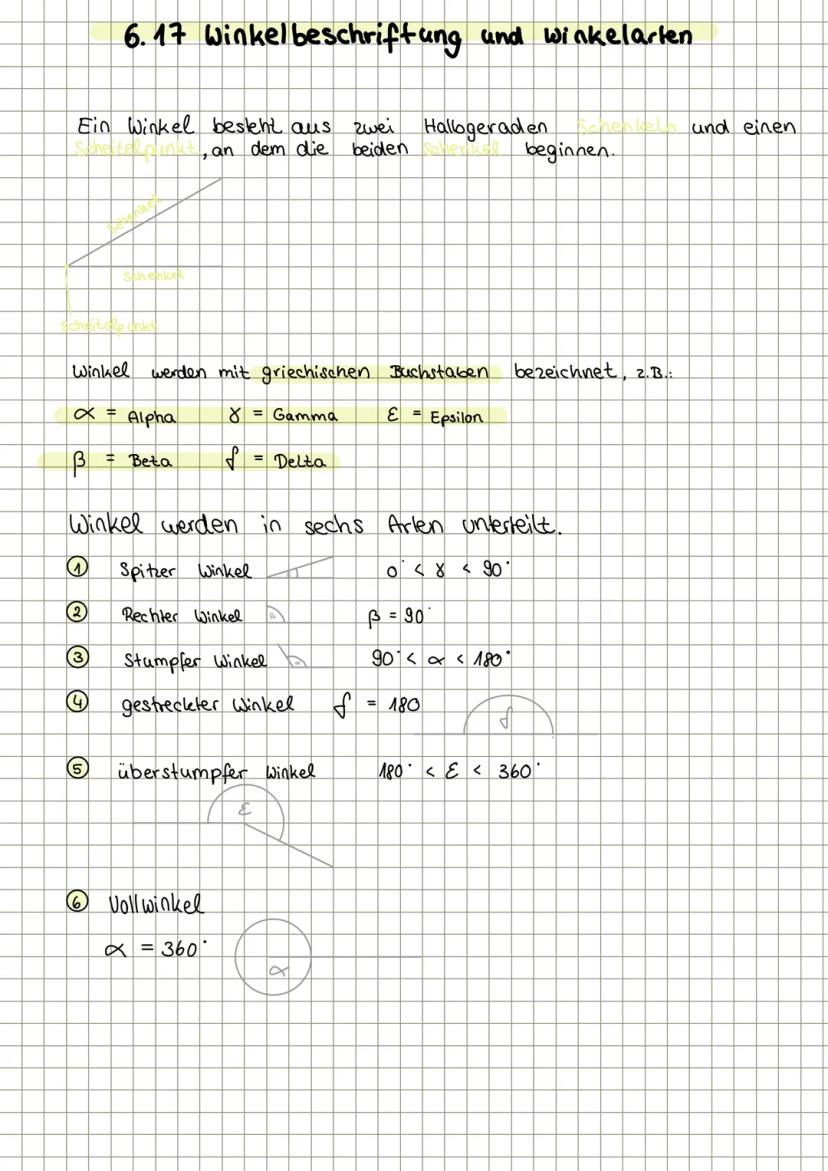 6.17 Winkelbeschriftung und Winkelarten
Ein Winkel besteht aus zwei Halbgeraden Schenkeln und einen
Scheitelpunkt, an dem die beiden Schenkel beginnen.
Schenkel
Schenkel
Scheitelpunkt
Winkel werden mit griechischen Buchstaben bezeichnet, z.B.:
α = Alpha γ = Gamma ε = Epsilon
β = Beta δ = Delta
Winkel werden in sechs Arten unterteilt.
① Spitzer Winkel 0° < γ < 90°
② Rechter Winkel β = 90°
③ Stumpfer Winkel 90° < α < 180°
④ gestreckter Winkel δ = 180
δ
⑤ überstumpfer Winkel 180° < ε < 360°
ε
⑥ Vollwinkel
α = 360°
α